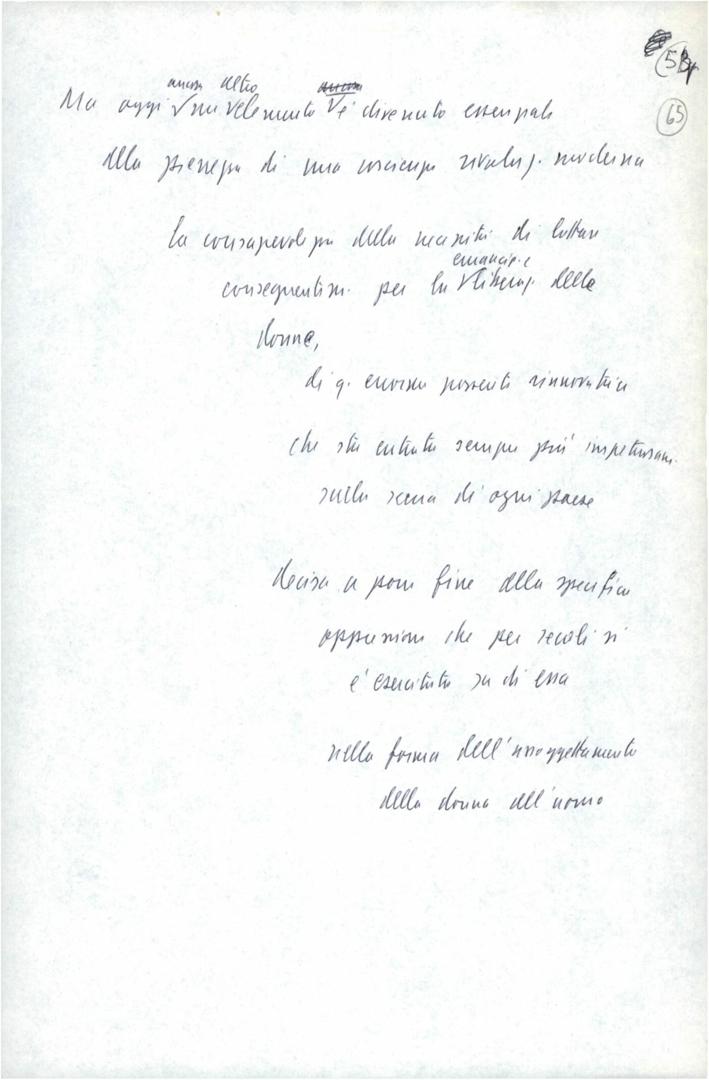 5B
65
ancora altro ancora
Ma oggi un elemento è divenuto essenziale
alla presenza di una coscienza rivoluz. moderna
la consapevolezza della necessità di lottare
emancip. e
conseguentem. per la liberaz. della
donna,
di q. enorme possente rinnovatrice
che sta entrata sempre più impetuosam.
sulla scena di ogni paese
decisa a porre fine alla specifica
oppressione che per secoli si
è esercitata su di essa
nella forma dell'assoggettamento
della donna all'uomo